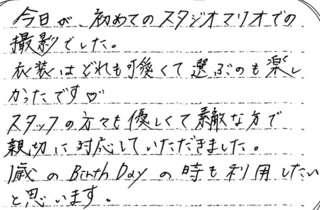 今日が、初めてのスタジオマリオでの
撮影でした。
衣装はどれも可愛くて選ぶのも楽し
かったです♡
スタッフの方々も優しくて素敵な方で
親切に対応していただきました。
1歳の Birth Day の時も利用したい
と思います。